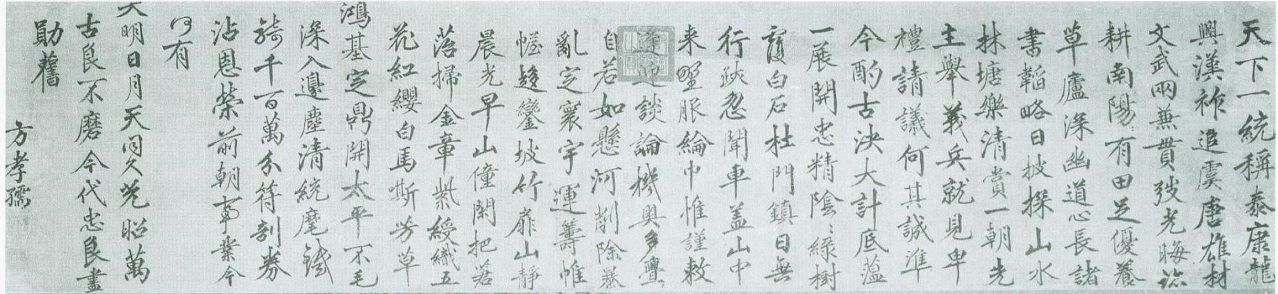 天下一統稱泰康龍
興漢祚追虞唐雄材
文武兩兼貫弢光晦迹
耕南陽有田足優養
草廬深幽道心長諸
書韜略日披探山水
林塘樂清賞一朝先
主舉義兵就見卑
禮請議何其誠準
今酌古決大計底蘊
一展開忠精陰〻綠樹
覆白石杜門鎮日無
行跡忽聞車蓋山中
来野服綸巾惟謹敕
逢迎談論機
自若如懸河削除暴
亂定寰宇運籌帷
幄趍鑾坡竹扉山靜
晨光早山僮閑把蒼
落掃金章紫綬織五
花紅纓白馬斯芳草
鴻基定鼎開太平不毛
深入邊塵清統麾鐵
騎千百萬分符剖券
沾恩榮前朝事業今
何有
大明日月天同久光昭萬
古良不磨今代忠良盡
勛舊
方孝孺